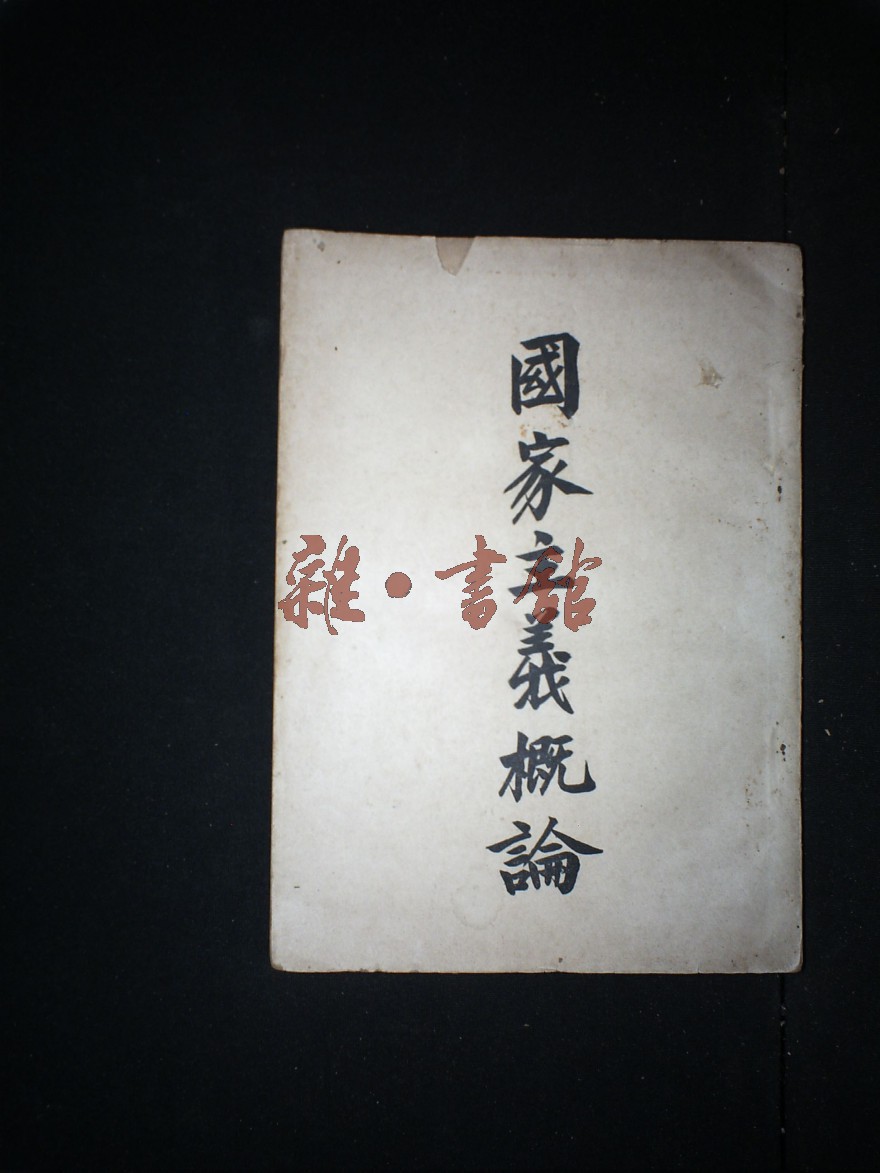 國家主義概論
雜·書館